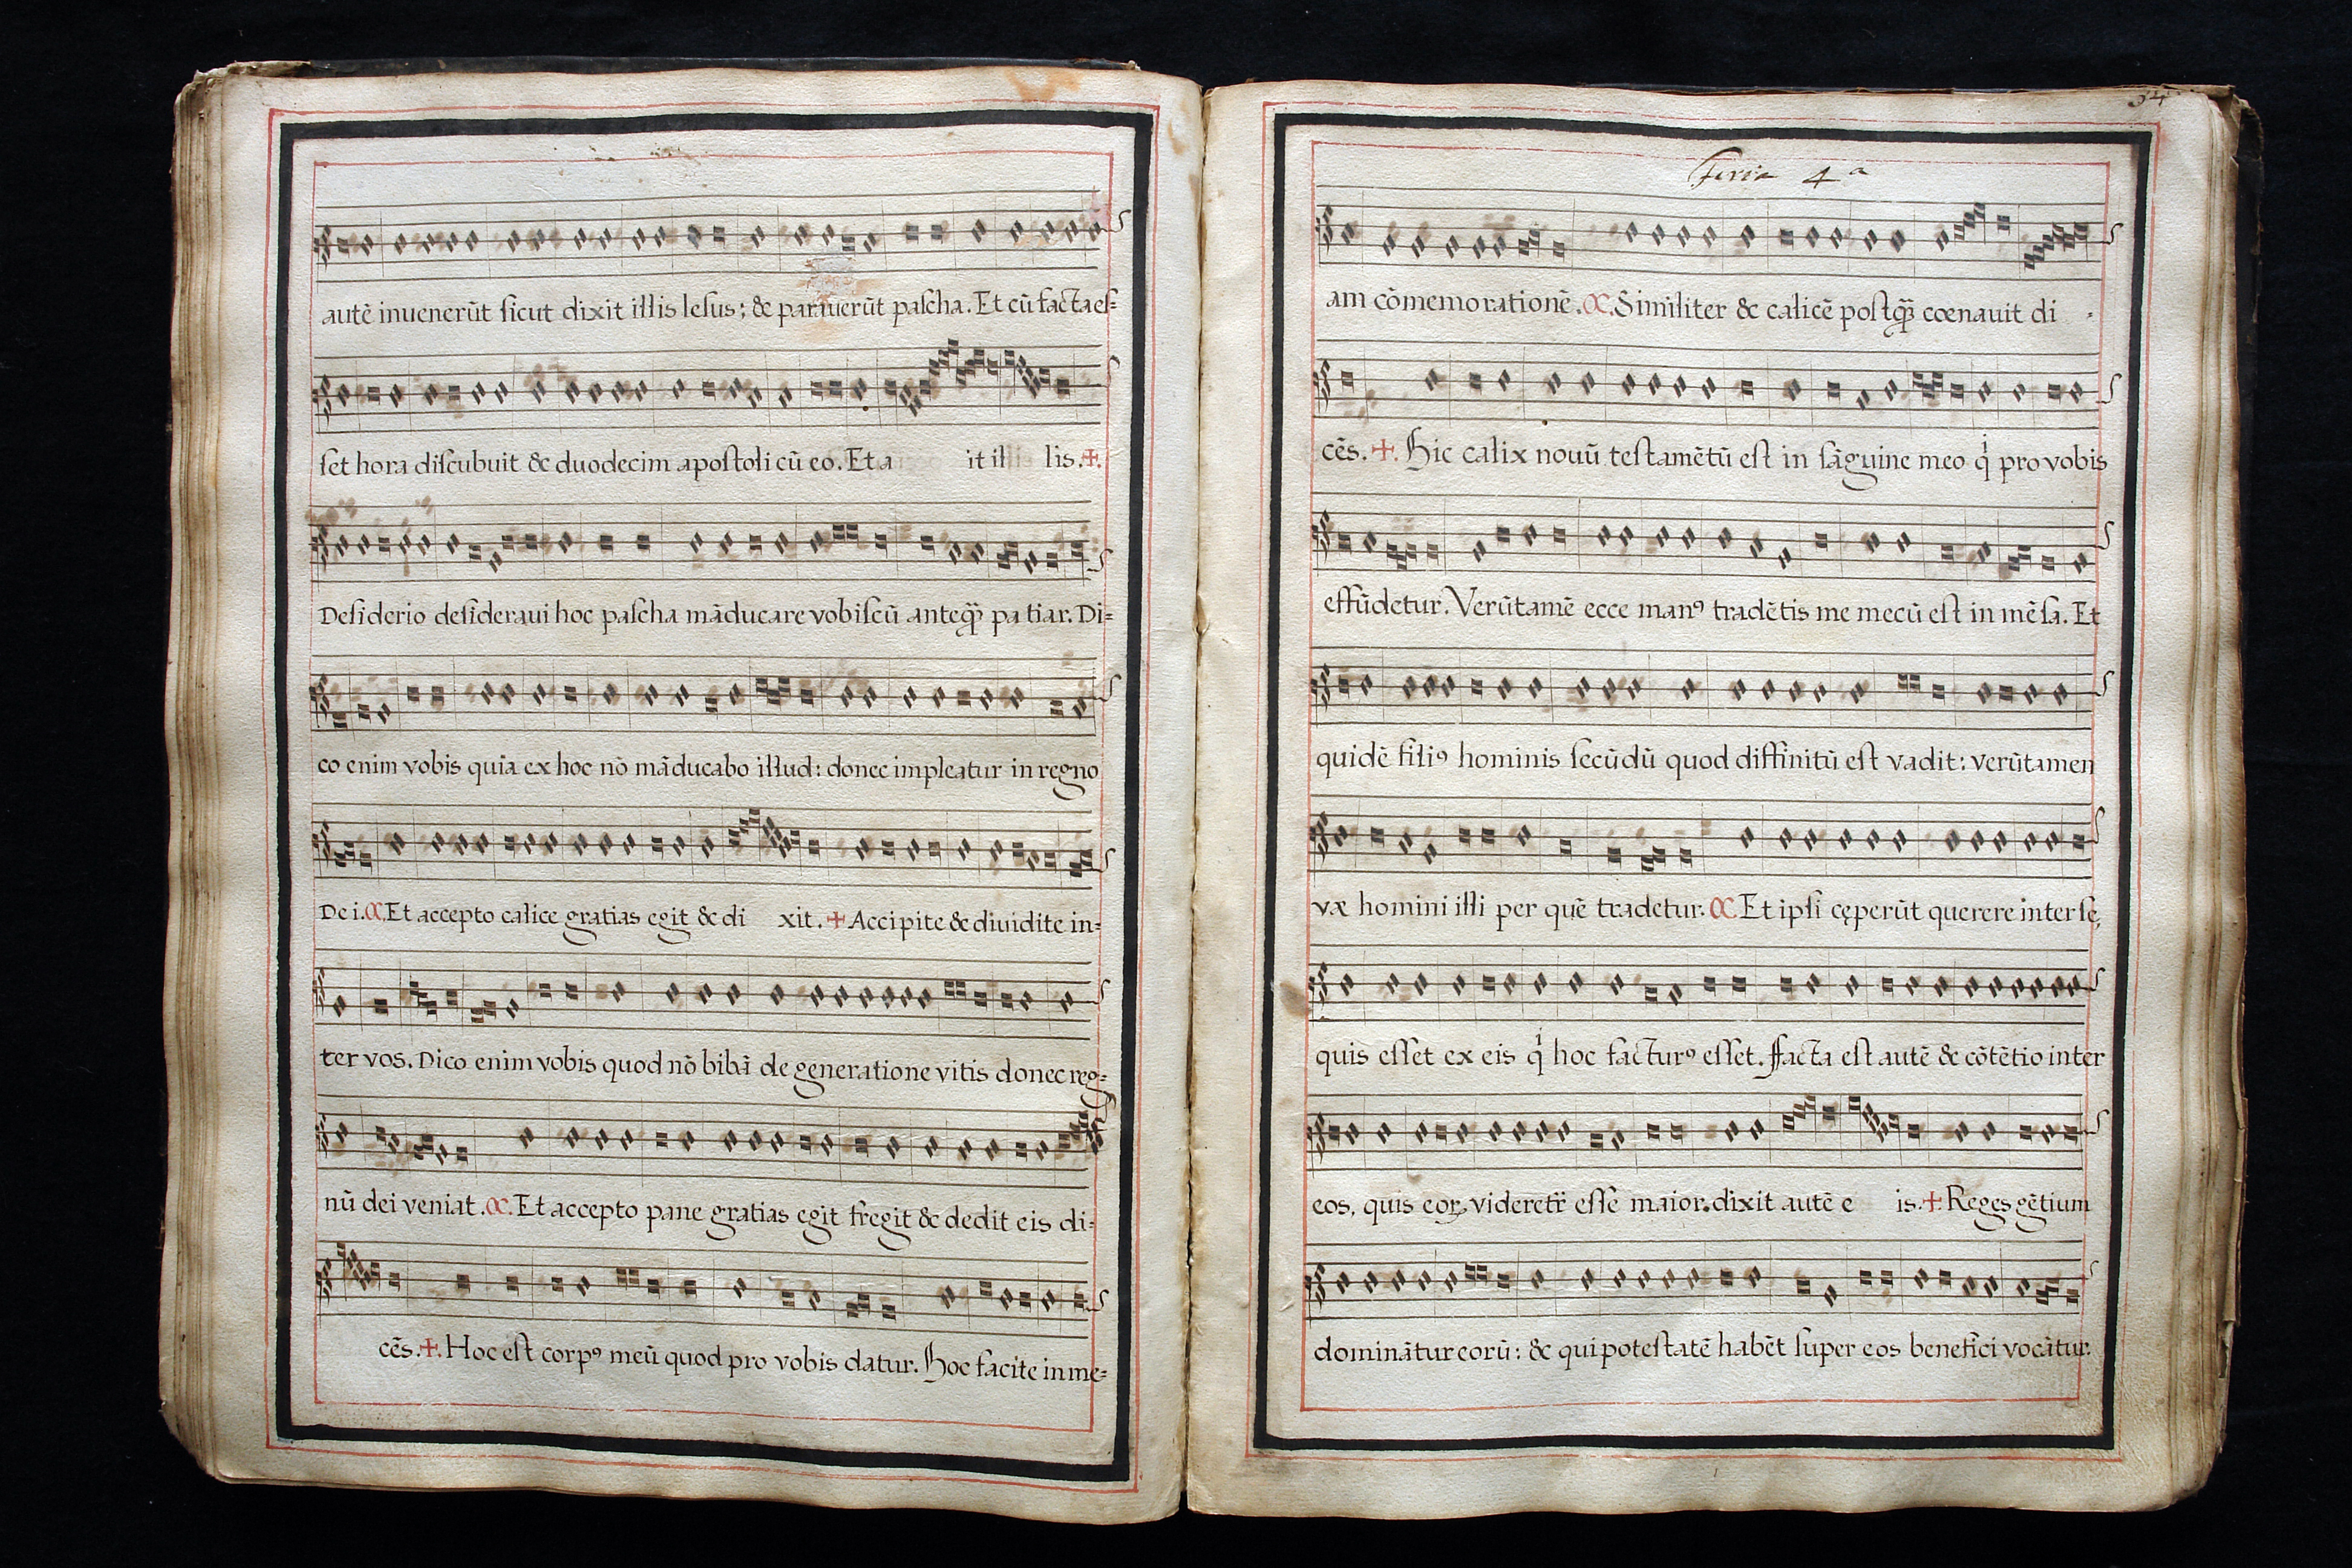 autē inuenerūt ſicut dixit illis Ieſus; & parauerūt paſcha. Et cū facta eſ=
ſet hora diſcubuit & duodecim apoſtoli cū eo. Et a it il lis. ✠.
Deſiderio deſideraui hoc paſcha māducare vobiſcū anteq̃ᷓ pa tiar. Di=
co enim vobis quia ex hoc nō māducabo illud: donec impleatur in regno
Dei. C. Et accepto calice gratias egit & di xit. ✠ Accipite & diuidite in=
ter vos. Dico enim vobis quod nō bibā de generatione vitis donec reg=
nū dei veniat. C. Et accepto pane gratias egit fregit & dedit eis di=
cēs. ✠. Hoc eſt corpꝰ meū quod pro vobis datur. Hoc facite in me=
34
Feria 4ª
am cōmemorationē. C. Similiter & calicē poſtq̃ᷓ cœnauit di -
cēs. ✠. Hic calix nouū teſtamētū eſt in ſāguine meo qͥ pro vobis
effūdetur. Verūtamē ecce manꝰ tradētis me mecū eſt in mēſa. Et
quidē filiꝰ hominis ſecūdū quod diffinitū eſt vadit: verūtamen
væ homini illi per quē tradetur. C. Et ipſi cęperūt querere inter ſe,
quis eſſet ex eis qͥ hoc facturꝰ eſſet. ffacta eſt autē & cōtētio inter
eos, quis eoꝝ videretr̄ eſſe maior. dixit autē e is. ✠. Reges gētium
dominātur eorū: & qui poteſtatē habēt ſuper eos benefici vocātur.